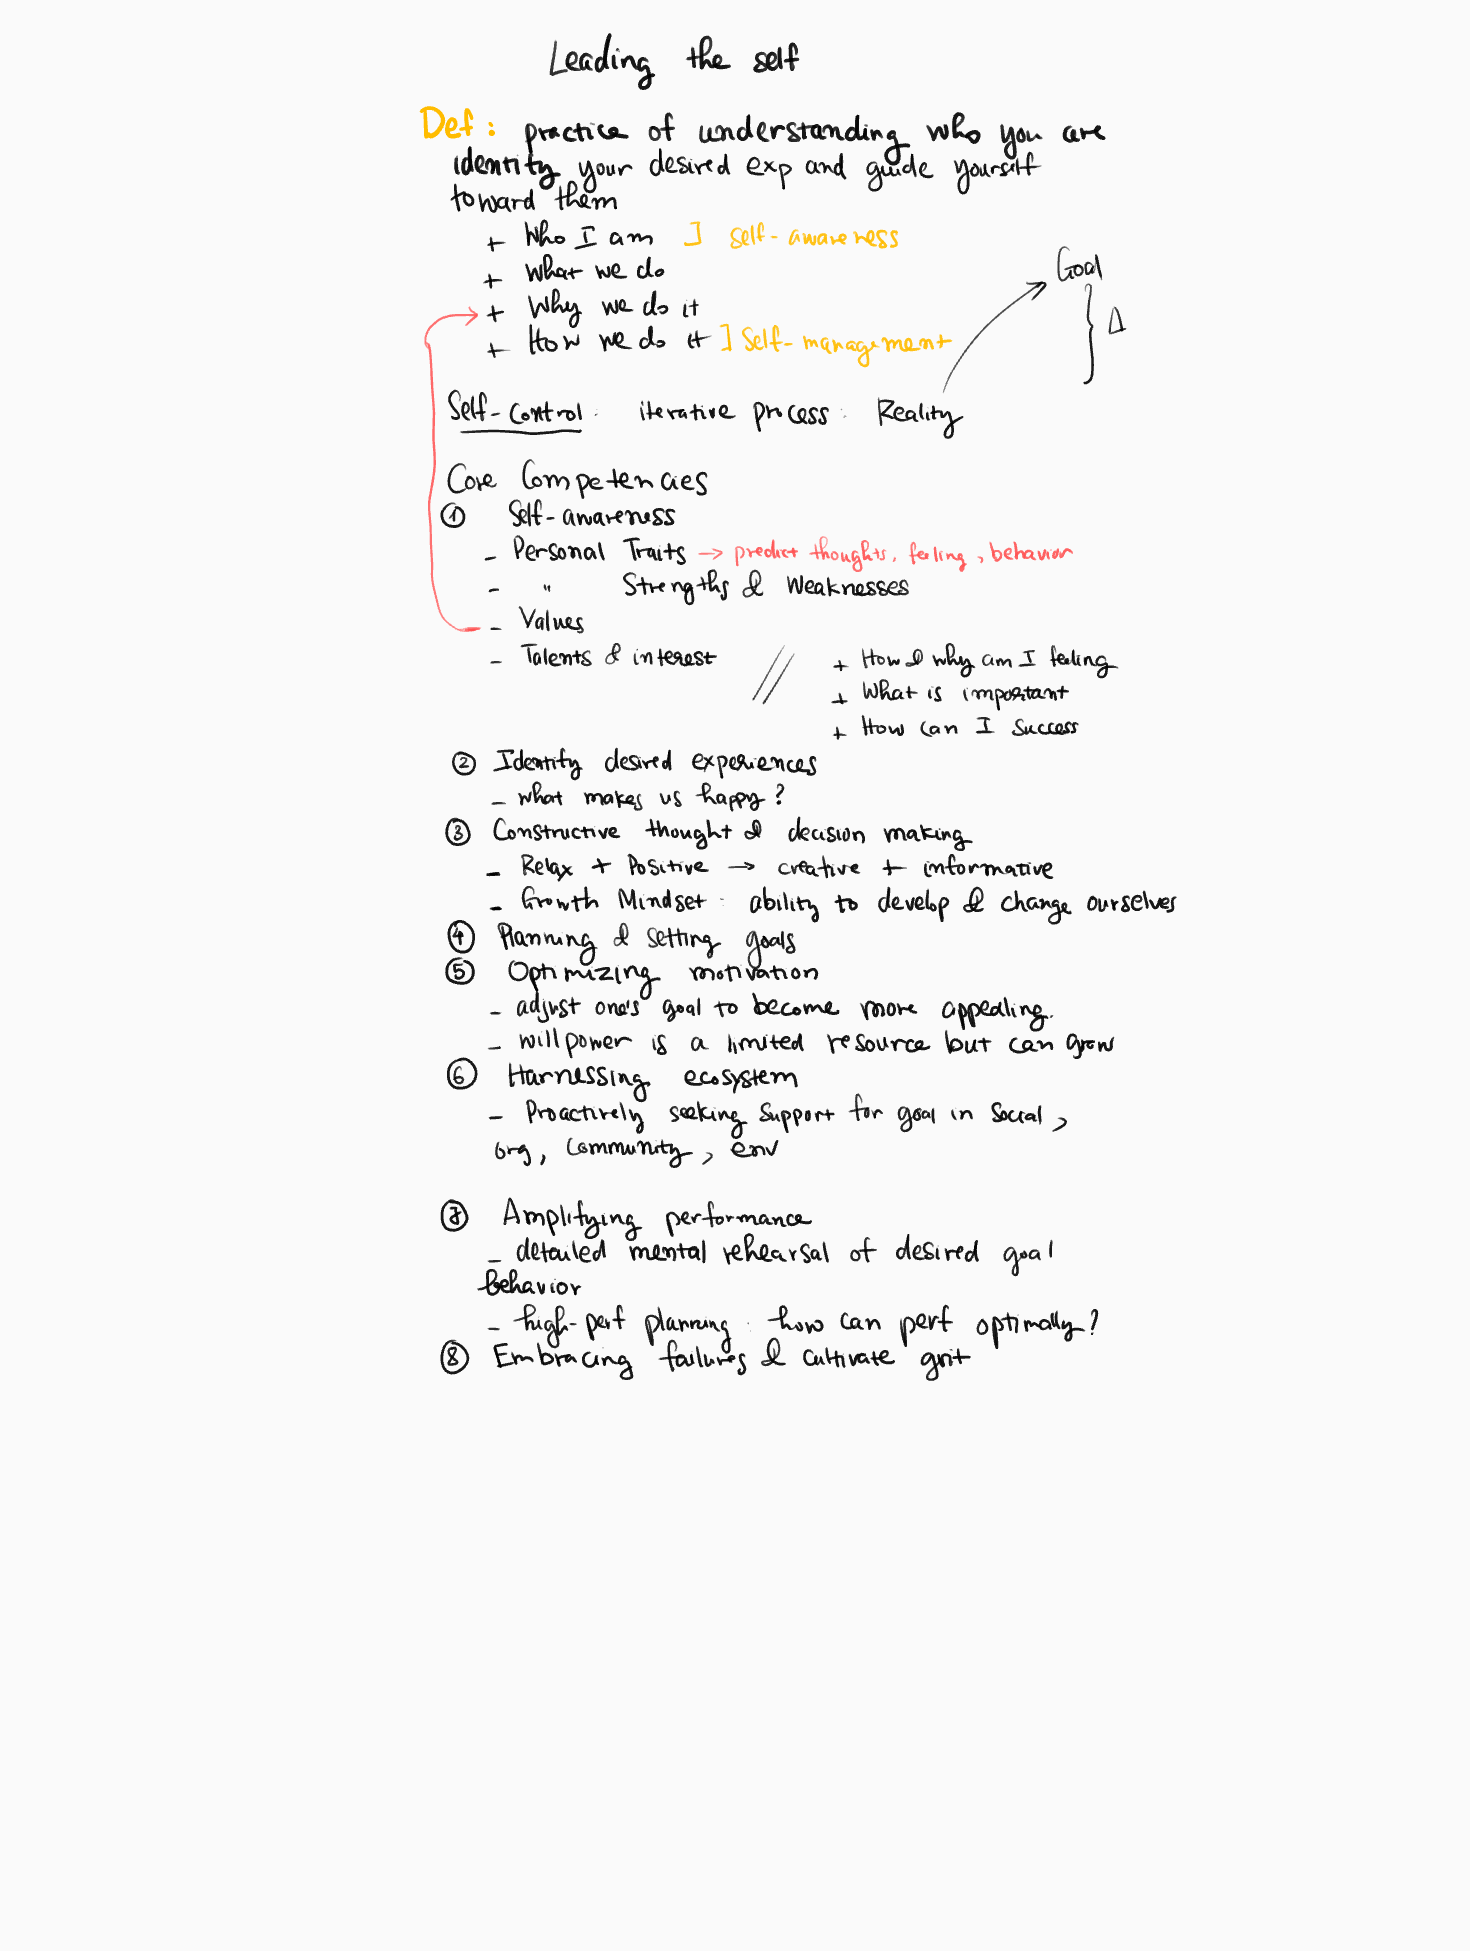 Leading the self
Def: practice of understanding who you are
identity your desired exp and guide yourself
toward them
+ Who I am ] self-awareness
+ What we do
Goal
+ Why we do it
Δ
+ How we do it ] Self-management
Self-Control: iterative process: Reality
Core Competencies
① Self-awareness
- Personal Traits → predict thoughts, feeling, behavior
- " Strengths & Weaknesses
- Values
- Talents & interest // + How & why am I feeling
+ What is important
+ How can I success
② Identity desired experiences
- what makes us happy?
③ Constructive thought & decision making
- Relax + Positive → creative + informative
- Growth Mindset: ability to develop & change ourselves
④ Planning & setting goals
⑤ Optimizing motivation
- adjust one's goal to become more appealing.
- willpower is a limited resource but can grow
⑥ Harnessing ecosystem
- Proactively seeking support for goal in social,
org, community, env
⑦ Amplifying performance
- detailed mental rehearsal of desired goal
behavior
- high-perf planning: how can perf optimally?
⑧ Embracing failures & cultivate grit